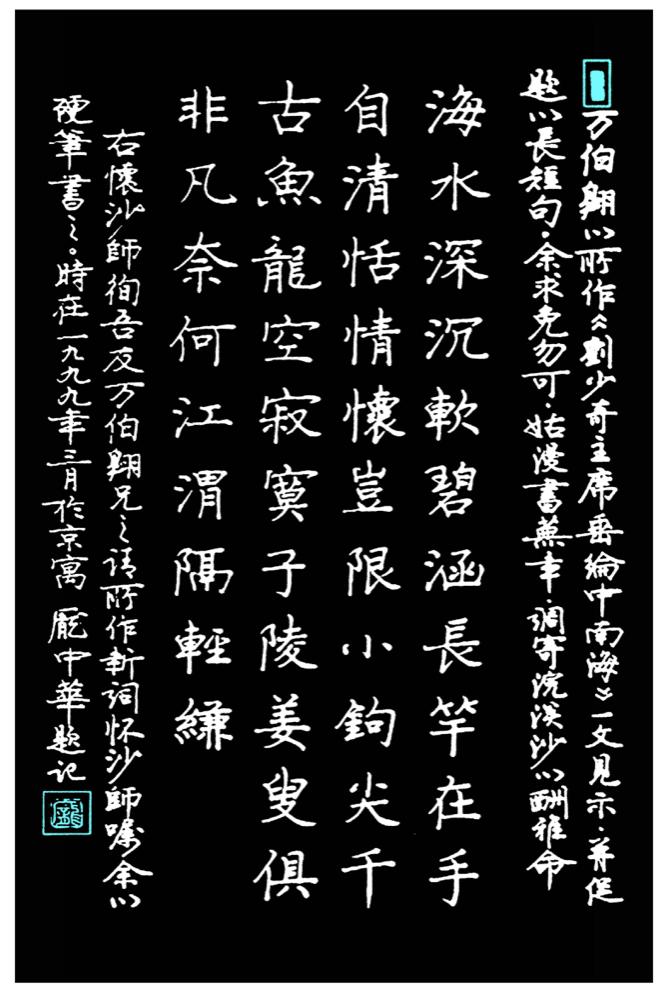 万伯翱以所作《刘少奇主席垂纶中南海》一文见示、并促
题以長短句。余求免勿可、姑漫書蕪章調寄浣溪沙以酬雅命
海水深沉軟碧涵長竿在手
自清恬情懷豈限小鉤尖千
古魚龍空寂寞子陵姜叟俱
非凡奈何江渭隔輕縑
右懷沙師徇吾友万伯翱兄之请所作新词怀沙師嘱余以
硬筆書之。時在一九九九年三月於京寓 龐中華题记